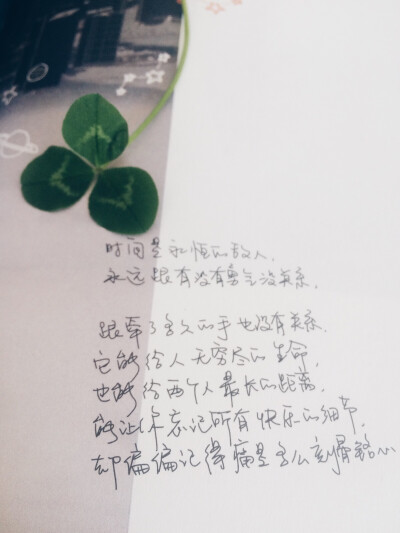 时间是永恒的敌人.
永远跟有没有勇气没关系.
跟牵了多久的手也没有关系.
它能给人无穷尽的生命.
也能给两个人最长的距离.
能让你忘记所有快乐的细节.
却偏偏记得痛是多么刻骨铭心